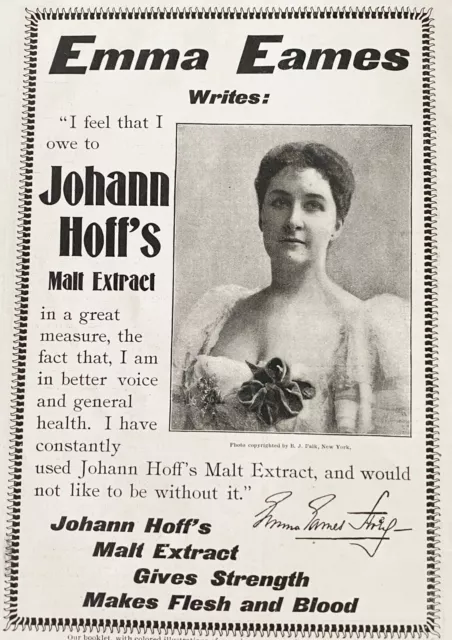 Emma Eames
Writes:
"I feel that I
owe to
Johann
Hoff's
Malt Extract
in a great
measure, the
fact that, I am
in better voice
and general
health. I have
constantly
used Johann Hoff's Malt Extract, and would
not like to be without it."
Photo copyrighted by B. J. Falk, New York.
Emma Eames Story
Johann Hoff's
Malt Extract
Gives Strength
Makes Flesh and Blood
Our booklet, with colored illustrations